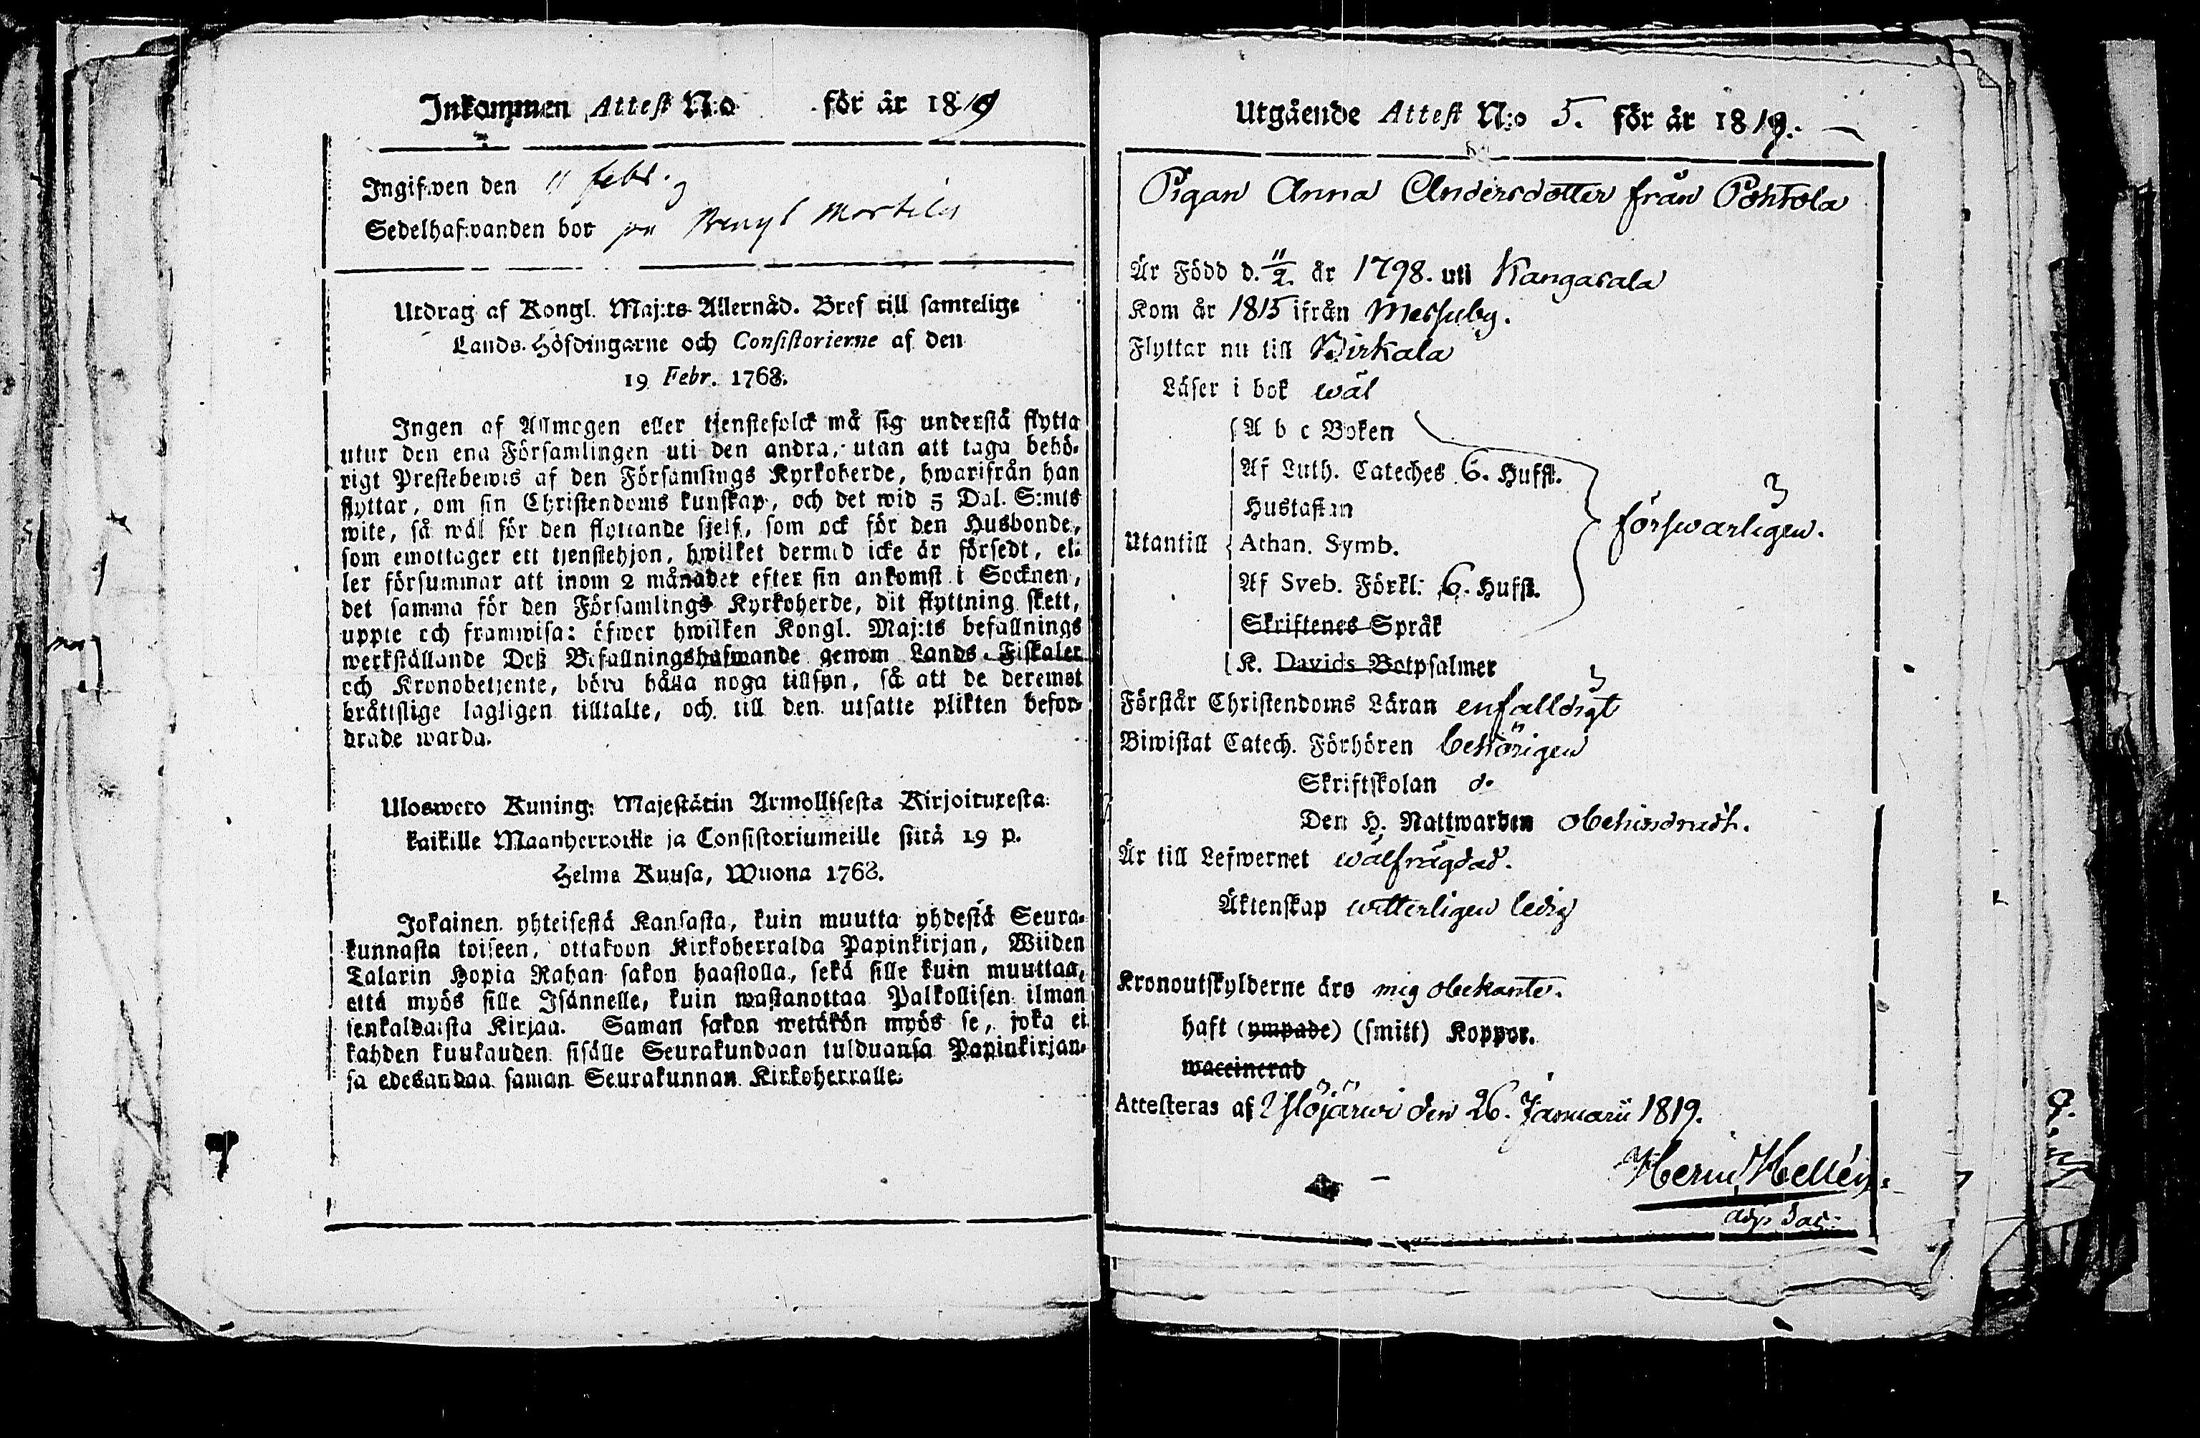 Inkommen Attest N:o för år 1819
Ingifwen den 11 febr.
Sedelhafwanden bor på Mortila
Utdrag af Kongl. Maj:ts Allernåd. Bref till samtelige
Lands-Höfdingarne och Consistorierne af den
19 Febr. 1768.
Ingen af Allmogen eller tjenstefolck må sig understå flytta
utur den ena Församlingen uti den andra, utan att taga behö-
rigt Prestebewis af den Församlings Kyrkoherde, hwarifrån han
flyttar, om sin Christendoms kunskap, och det wid 5 Dal. S:mts
wite, så wäl för den flyttande sjelf, som ock för den Husbonde,
som emottager ett tjenstehjon, hwilket dermed icke är försedt, el-
ler försummar att inom 2 månader efter sin ankomst i Socknen,
det samma för den Församlings Kyrkoherde, dit flyttning skett,
uppte och framwisa: öfwer hwilken Kongl. Maj:ts befallnings
werkställande Deß Befallningshafwande genom Lands-Fiskaler
och Kronobetjente, böra hålla noga tillsyn, så att de deremot
bråttslige lagligen tilltalte, och till den utsatte plikten befor-
drade warda.
Ulosweto Kuning: Majestätin Armollisesta Kirjoituxesta:
kaikille Maanherroille ja Consistoriumeille siitä 19 p.
Helme Kuusa, Wuona 1768.
Jokainen yhteisestä Kansasta, kuin muutta yhdestä Seura-
kunnasta toiseen, ottakoon Kirkoherralda Papinkirjan, Wiiden
Talarin Hopia Rahan sakon haastolla, sekä sille kuin muuttaa,
että myös sille Isännelle, kuin wastanottaa Palkollisen ilman
senkaldaista Kirjaa. Saman sakon wetäkön myös se, joka ei
kahden kuukauden sisälle Seurakundaan tulduansa Papinkirjan-
sa edesandaa saman Seurakunnan Kirkoherralle.
Utgående Attest N:o 5. för år 1819.
Pigan Anna Andersdotter från Pohtola
Är Född d. 11/2. år 1798. uti Kangasala
Kom år 1815 ifrån Messuby.
Flyttar nu till Birkala
Läser i bok wäl
A b c Boken
Af Luth. Cateches 6. Hufst.
Hustaflan
Utantill Athan. Symb. förswarligen.
Af Sveb. Förkl: 6. Hufst.
Skriftenes Språk
K. Davids Botpsalmer
Förstår Christendoms Läran enfalldigt
Biwistat Catech. Förhören behörigen
Skriftskolan do
Den H. Nattwarden obehindradt.
Är till Lefwernet wälfrägdad.
Äktenskap witterligen ledig
Kronoutskylderne äro mig obekante.
haft (ympade) (smitt) Koppor.
waccinerad
Attesteras af Ylöjärwi den 26. Januarii 1819.
Herm. Hellén.
adj. Sac: